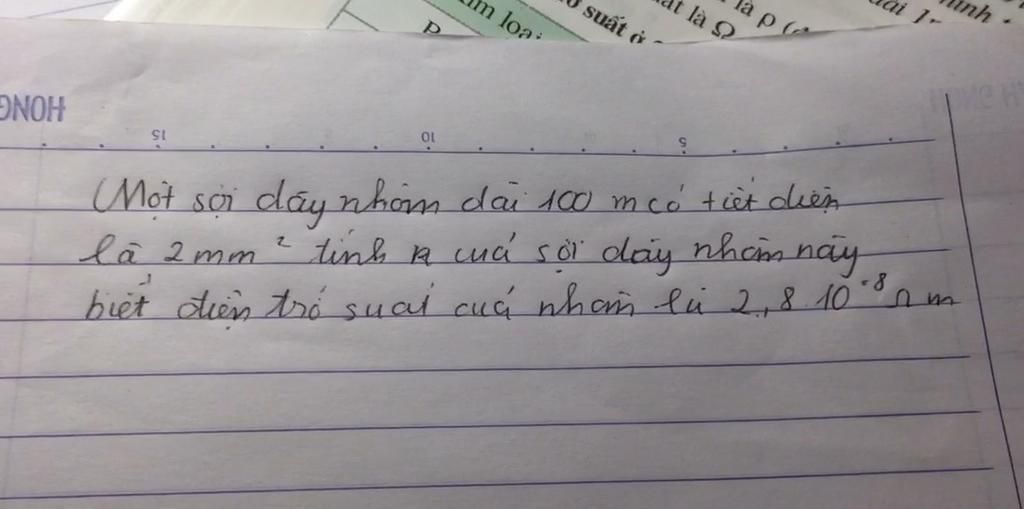 P
im loại
suất ở
ất là Ω
là ρ
dài 1
HONG
15 10 5
Một sợi dây nhôm dài 100 m có tiết diện
là 2 mm² tính R cuả sợi dây nhôm này
biết điện trở suất cuả nhôm là 2,8 10⁻⁸ Ω m